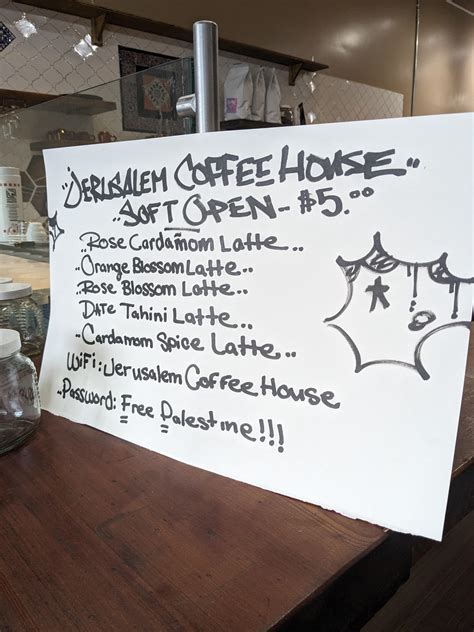 ..Jerusalem Coffee House..
..Soft Open - $5.00
..Rose Cardamom Latte..
..Orange Blossom Latte..
..Rose Blossom Latte..
..Date Tahini Latte..
..Cardamom Spice Latte..
WiFi: Jerusalem Coffee House
..Password: Free Palestine!!!